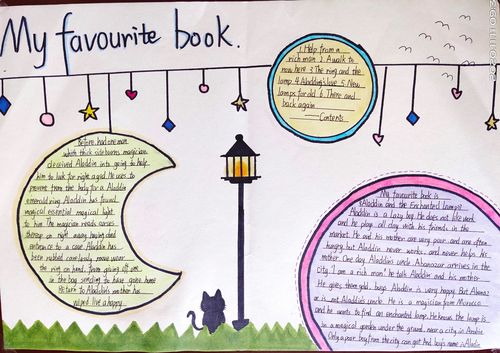 My favourite book.
1. Help from a
rich man 2. A walk to
now here 3. The ring and the
lamp 4. Aladding's love 5. New
lamps for old 6. There and
back again
Contents
Before, had one man
which thick sideburns magician
deceived Aladdin into going to help
him to look for night aged He uses to
prevent from the body for a Aladdin
emerald ring Aladdin has found
magical essential magical light
to him The magician reads curses
on right away
entrance to a cave Aladdin has
been rubbed move
the ring on hand, from giving off
in the bog sending to have gone home
Return to Aladdin's mother has
wiped live a happy.
My favourite book is
《Aladdin and the Enchanted Lamp》
Aladdin is a lazy boy. He does not like work
and he plays all day with his friends in the
market. He and his mother are very poor and are often
hungry, but Aladdin never works and never helps his
mother. One day Aladdin's uncle Abanazar arrives in the
city, I am a rich man! He tells Aladdin and his mother
He gives them gold. buys Aladdin is very happy But Abanaz
ar is not Aladdin's uncle. He is a magician from Morocco
and he wants to find an enchanted lamp. He knows the lamp is
in a magical garden under the ground, near a city in Arabia
Only a poor boy from the city can get And boy's name is Aladin